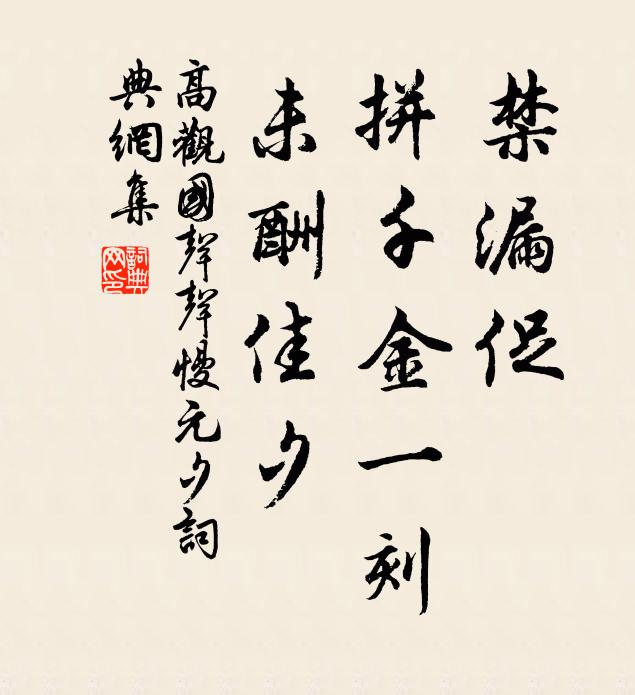 禁漏促
拼千金一刻
未酬佳夕
高觀國聲聲慢元夕詞
典網集
詞典
网印